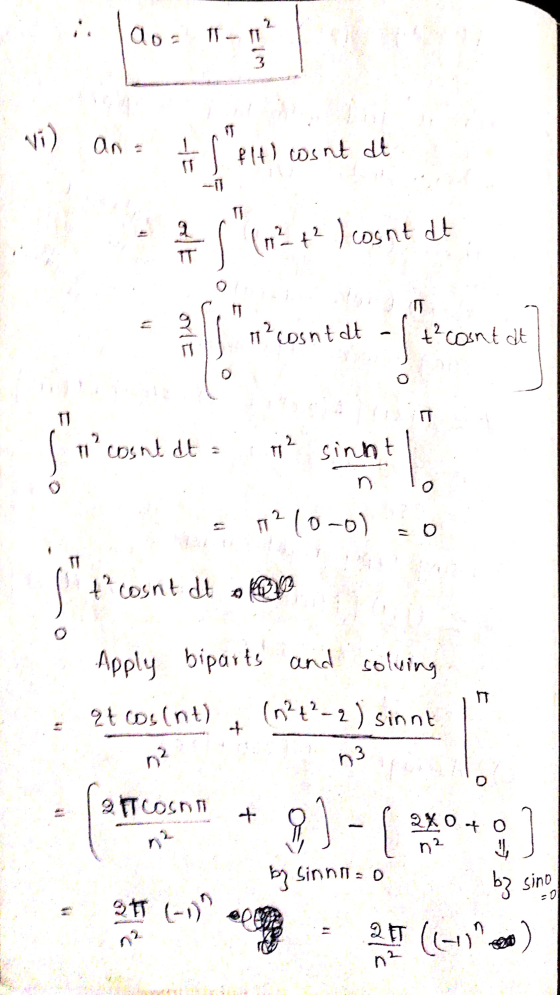 ∴ a₀ = π - π²/3
vi) an = 1/π ∫_{-π}^{π} f(t) cosnt dt
= 2/π ∫_0^π (π² - t²) cosnt dt
= 2/π [ ∫_0^π π² cosnt dt - ∫_0^π t² cosnt dt ]
∫_0^π π² cosnt dt = π² sinnt/n |_0^π
= π² (0-0) = 0
∫_0^π t² cosnt dt
Apply biparts and solving
= 2t cos(nt)/n² + (n²t²-2) sinnt/n³ |_0^π
= [ 2πcosnπ/n² + 0 ] - [ 2×0/n² + 0 ]
⇓ bz sinnπ = 0 ⇓ bz sin0 = 0
= 2π/n² (-1)ⁿ = 2π/n² ((-1)ⁿ)